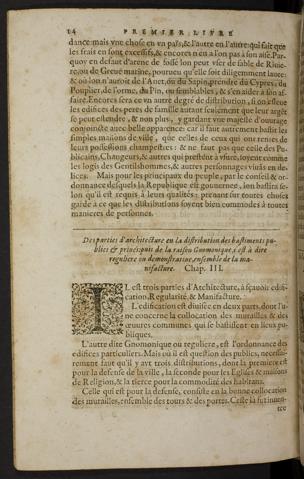 14 PREMIER LIVRE
dance: mais vne chose en vn païs, & l'autre en l'autre: qui fait que
les frais en sont excessifs, & encores n'en a l'on pas à son aise. Par-
quoy en defaut d'arene de fosse lon peut vser de sable de Riuie-
re, ou de Greue marine, pourueu qu'elle soit diligemment lauee:
& où lon n'auroit de l'Aune, ou du Sapin, prendre du Cypres, du
Pouplier, de l'orme, du Pin, ou semblables, & s'en aider à son af-
faire. Encores sera ce vn autre degré de distribution, si on esleue
les edifices des peres de famille autant seulement que leur argët
se peut estendre, & non plus, y gardant vne majesté d'ouurage
conjointe auec belle apparence: car il faut autrement bastir les
simples maisons de ville, que celles de ceux qui ont rentes de
leurs possessions champestres: & ne faut pas que celle des Pu-
blicains, Changeurs, & autres qui prestent à vsure, soyent comme
les logis des Gentilshommes, & autres personnages viuäs en de-
lices. Mais pour les principaux du peuple, par le conseil & or-
donnance desquels la Republique est gouuernee, lon bastira se-
lon qu'il est requis à leurs qualités, prenant sur toutes choses
garde à ce que les distributions soyent bien commodes à toutes
manieres de personnes.
Des parties d'architecture en la distribution des bastimens pu-
bliés & priués, puis de la raison Gnomonique, c'est à dire
reguliere ou demonstratiue, ensemble de la ma-
nifacture. Chap. III.
IL est trois parties d'Architecture, à sçauoir edifi-
cation, Regularité, & Manifacture.
L'edification est diuisee en deux parts, dont l'v-
ne concerne la collocation des murailles & des
œuures communes qui se bastissent en lieux pu-
bliques.
L'autre dite Gnomonique ou reguliere, est l'ordonnance des
edifices particuliers. Mais où il est question des publics, necessai-
rement faut qu'il y ayt trois distributions, dont la premiere est
pour la defense de la ville, la seconde pour les Eglises & maisons
de Religion, & la tierce pour la commodité des habitans.
Celle qui est pour la defense, consiste en la bonne collocation
des murailles, ensemble des tours & des portes. Ceste là fut inuen-
tee